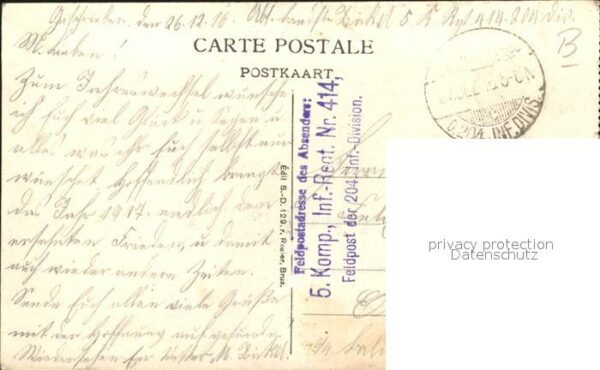 Geschrieben den 26.12.16. Abs. Landst. Bickel 5. K. Rgt 414. 204 Div.
M. Lieben!
CARTE POSTALE
POSTKAART
B
Zum Jahreswechsel wünsche
ich Euch viel Glück u. Segen u.
alles was ihr Euch selbst nur
wünschet. Hoffentlich bringt
das Jahr 1917 endlich den
ersehnten Frieden, u. damit
auch wieder andere Zeiten.
Sende Euch allen viele Grüße
mit der Hoffnung auf gesundes
Wiedersehen Eu Vetter M. Bickel.
Edit S.-D. 129, r. Brux.
Feldpostadresse des Absenders:
5. Komp., Inf.-Regt. Nr. 414,
Feldpost der 204. Inf.-Division.
204. INF. DIVIS.
privacy protection
Datenschutz